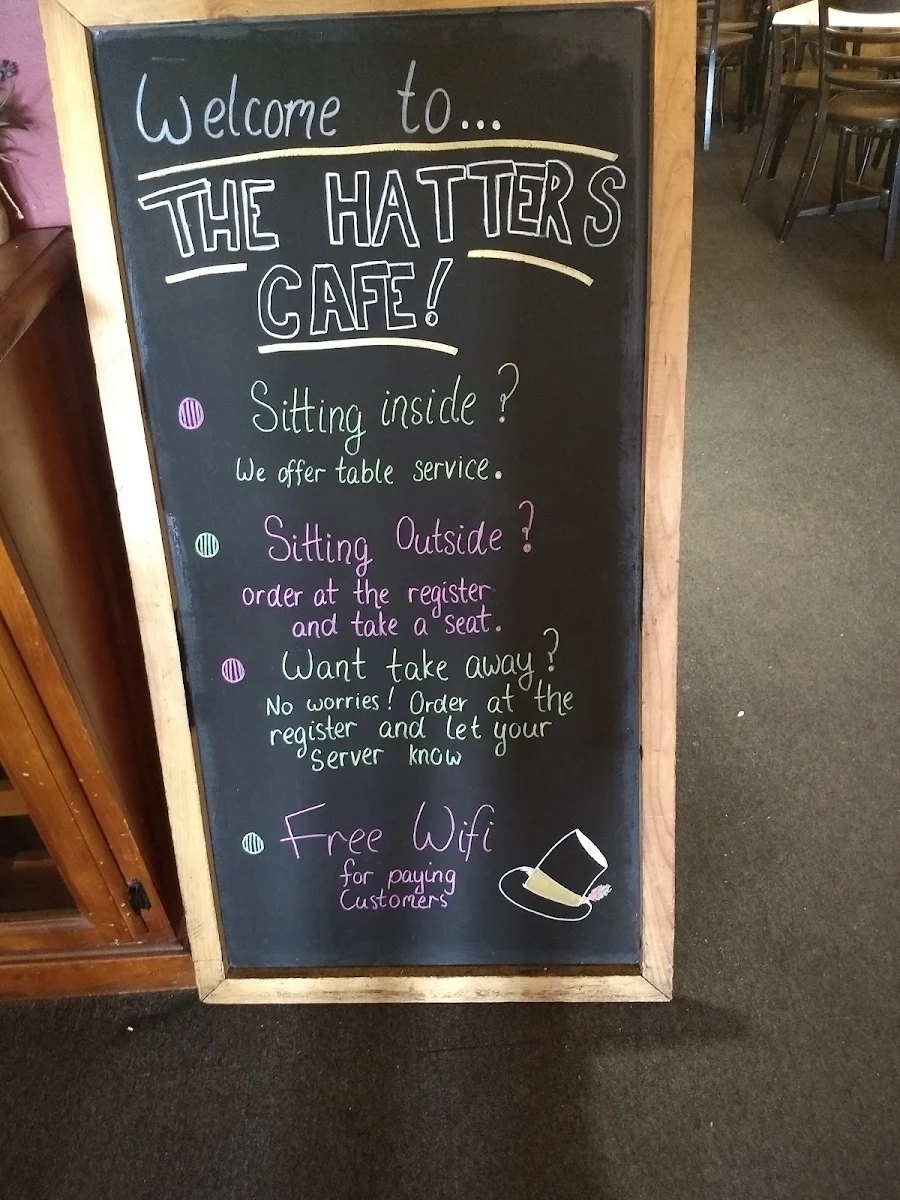 Welcome to...
THE HATTERS
CAFE!
Sitting inside?
We offer table service.
Sitting Outside?
order at the register
and take a seat.
Want take away?
No worries! Order at the
register and let your
Server know
Free Wifi
for paying
Customers